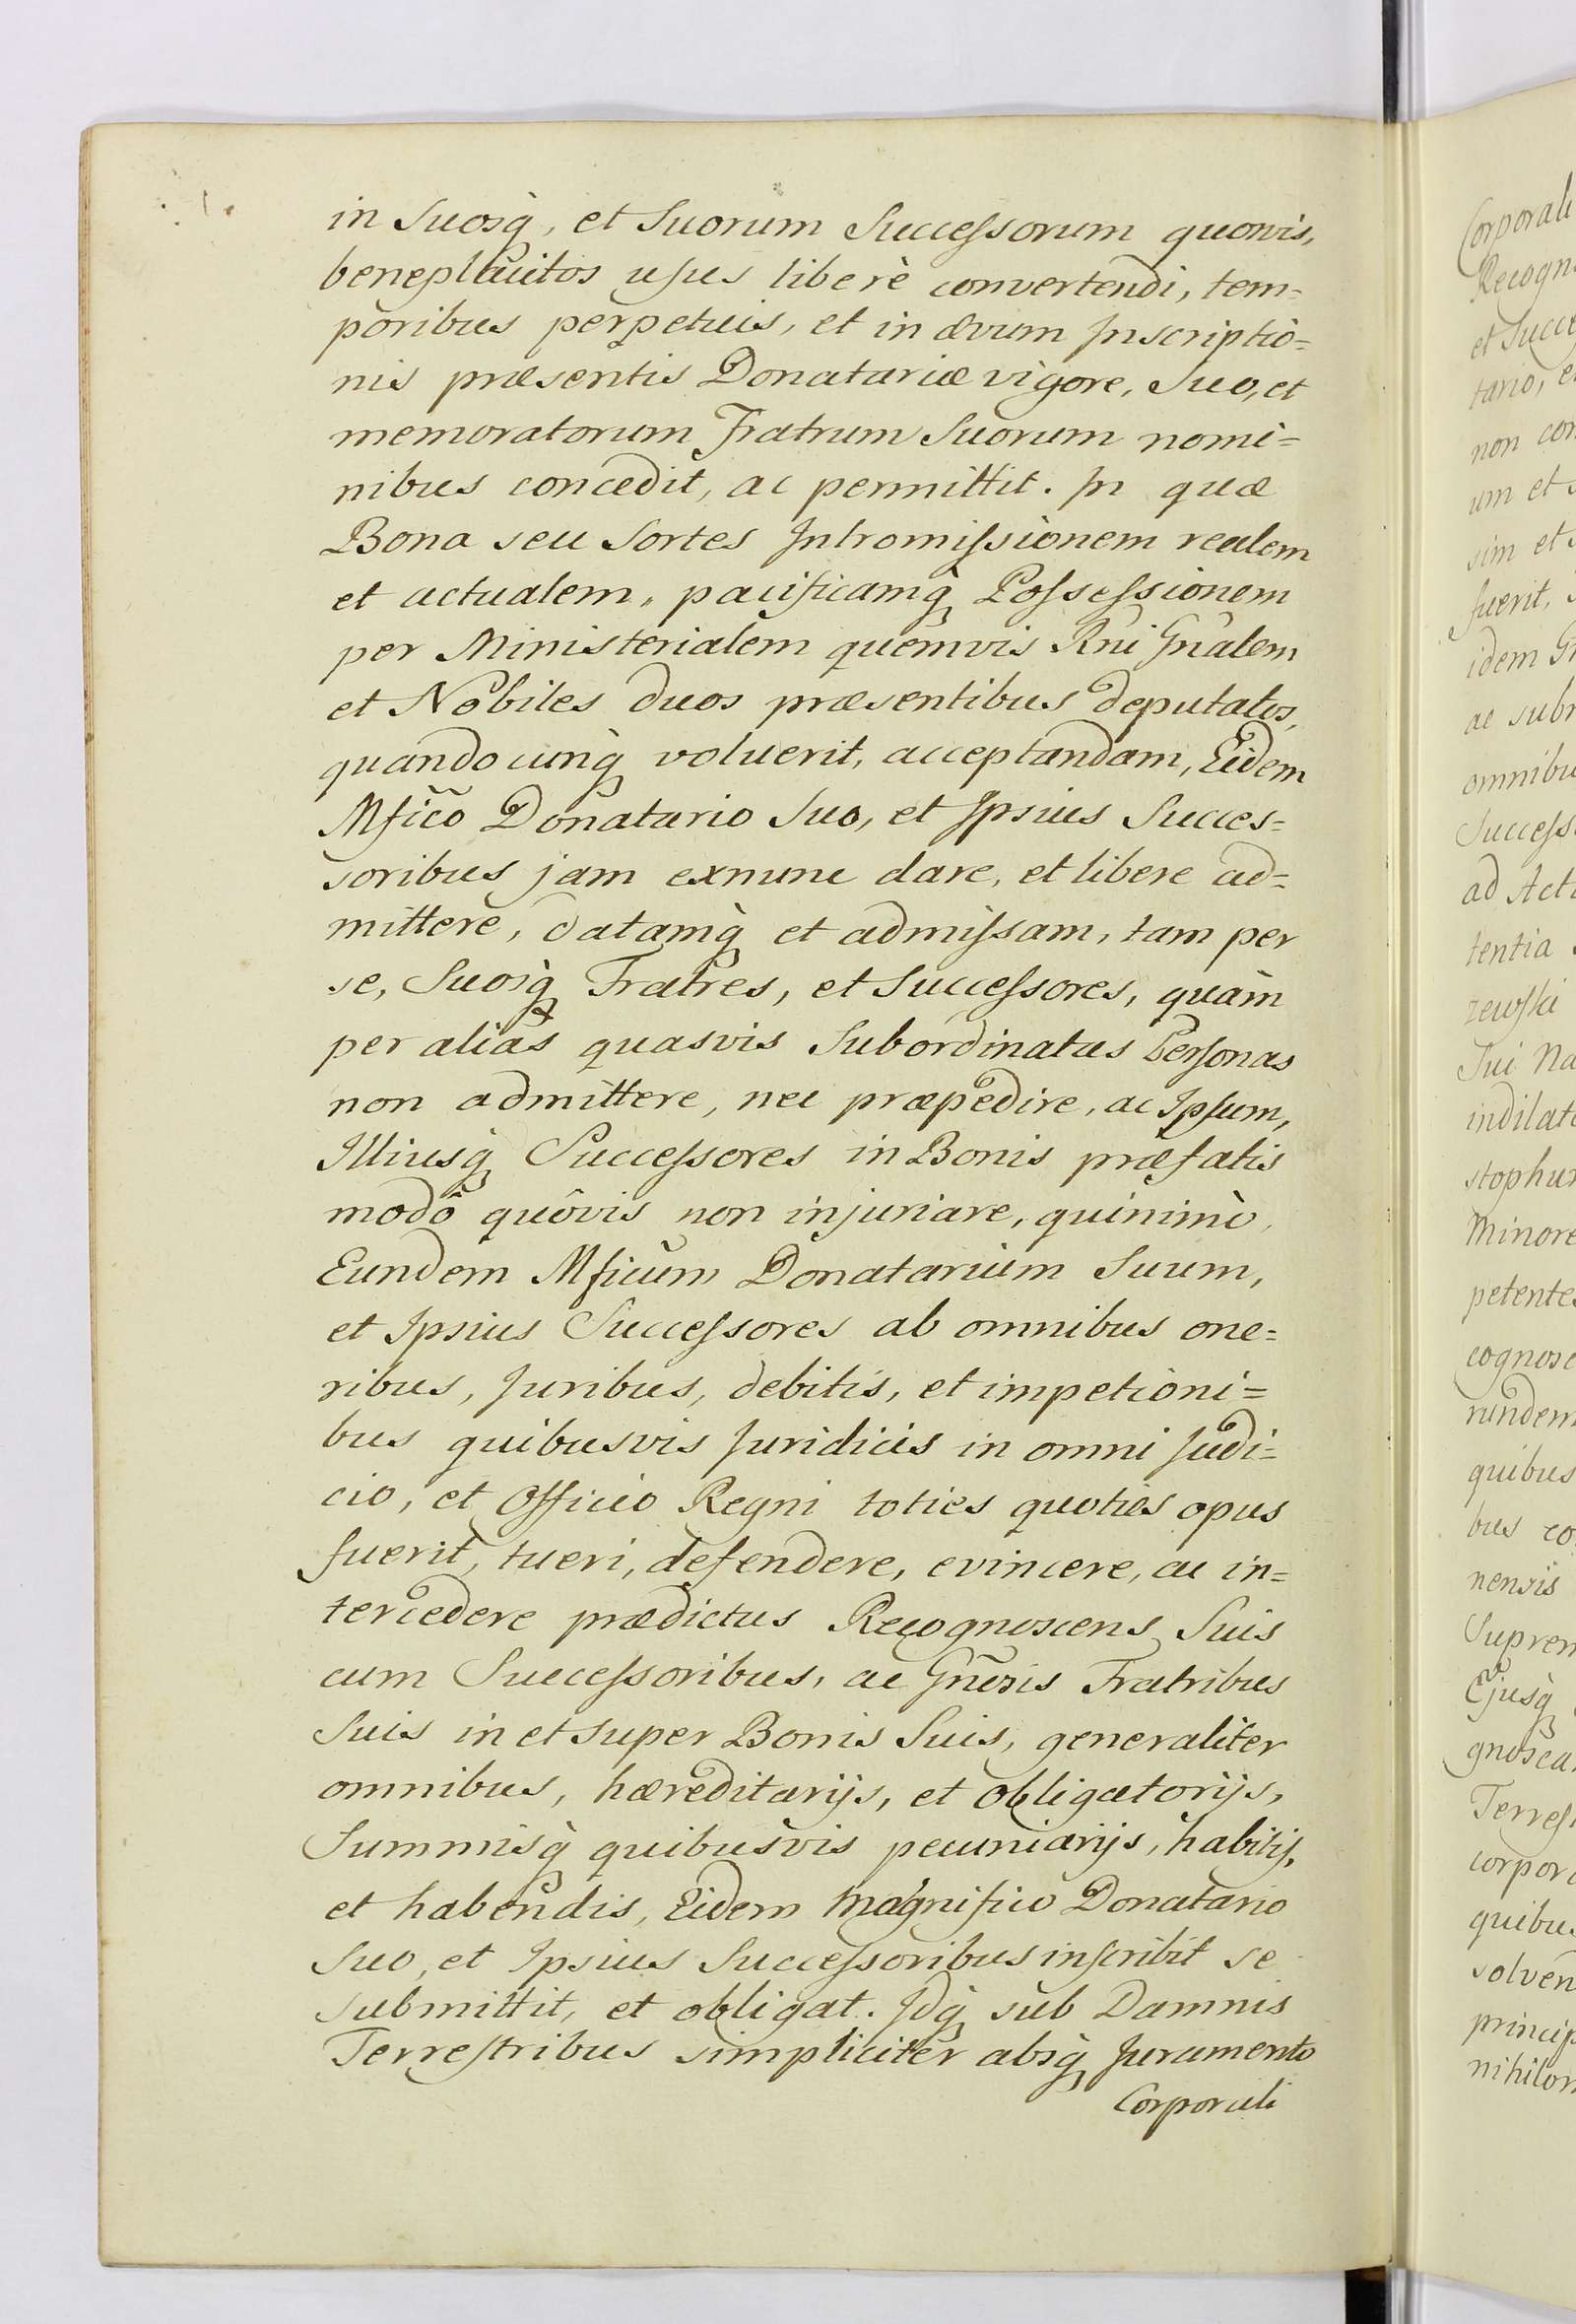 in Suosq́, et Suorum Successorum quovis,
beneplacitos usus liberè convertendi, tem=
poribus perpetuis, et in ævum Inscriptio=
nis præsentis Donatariæ vigore, Suo, et
memoratorum Fratrum Suorum nomi=
nibus concedit, ac permittit. In quæ
Bona seu Sortes Intromissionem realem
et actualem, pacificamq́ Possessionem
per Ministerialem quemvis Rni Gñalem
et Nobiles duos præsentibus deputatos,
quandocunq́ voluerit, acceptandam, Eidem
Mfico Donatario Suo, et Ipsius Succes=
soribus jam exnunc dare, et libere ad=
mittere, datamq́ et admissam, tam per
se, Suosq́ Fratres, et Successores, quàm
per alias quasvis Subordinatas Personas
non admittere, nec præpedire, ac Ipsum,
Illiusq́ Successores in Bonis præfatis
modô quôvis non injuriare, quinimò,
Eundem Mficum Donatarium Suum,
et Ipsius Successores ab omnibus one=
ribus, Juribus, debitis, et impetioni=
bus quibusvis Juridicis in omni Judi=
cio, et Officio Regni toties quoties opus
fuerit, tueri, defendere, evincere, ac in=
tercedere prædictus Recognoscens Suis
cum Successoribus, ac Gñosis Fratribus
Suis in et super Bonis Suis, generaliter
omnibus, hæreditarijs, et obligatorijs,
Summisq́ quibusvis pecuniarijs, habitis,
et habendis, Eidem Magnifico Donatario
Suo, et Ipsius Successoribus inscribit se
submittit, et obligat. Idq́ sub Damnis
Terrestribus simpliciter absq́ Juramento
Corporali
Corporali
Recogn
et Succe
tario, e
non con
um et
sim et
fuerit,
idem
ac subm
omnibu
Success
ad Acta
tentia
zewski
Sui Na
indilat
stophu
Minore
petentes
cognosc
rundem
quibus
bus co
nensis
Suprem
Ejusq́
gnosca
Terrest
corpor
quibus
solven
princip
nihilom